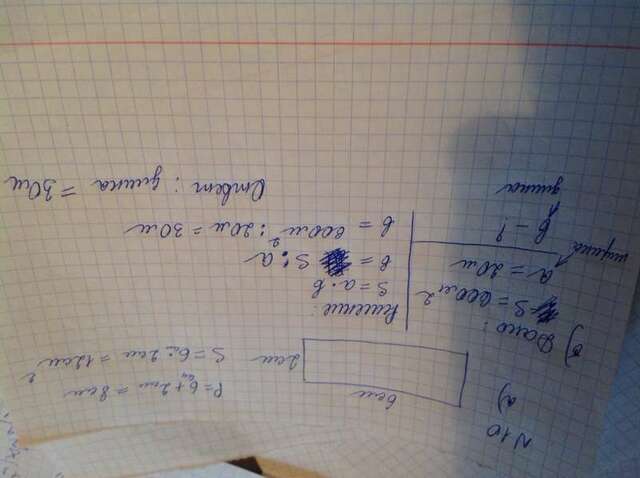 N10
а)
6см
P=6см+2см=8см
2см
S=6см·2см=12см²
б) Дано:
S=600м²
a=20м
ширина
b-?
длина
Решение:
S=a·b
b=S:a
b=600м²:20м=30м
Ответ: длина=30м